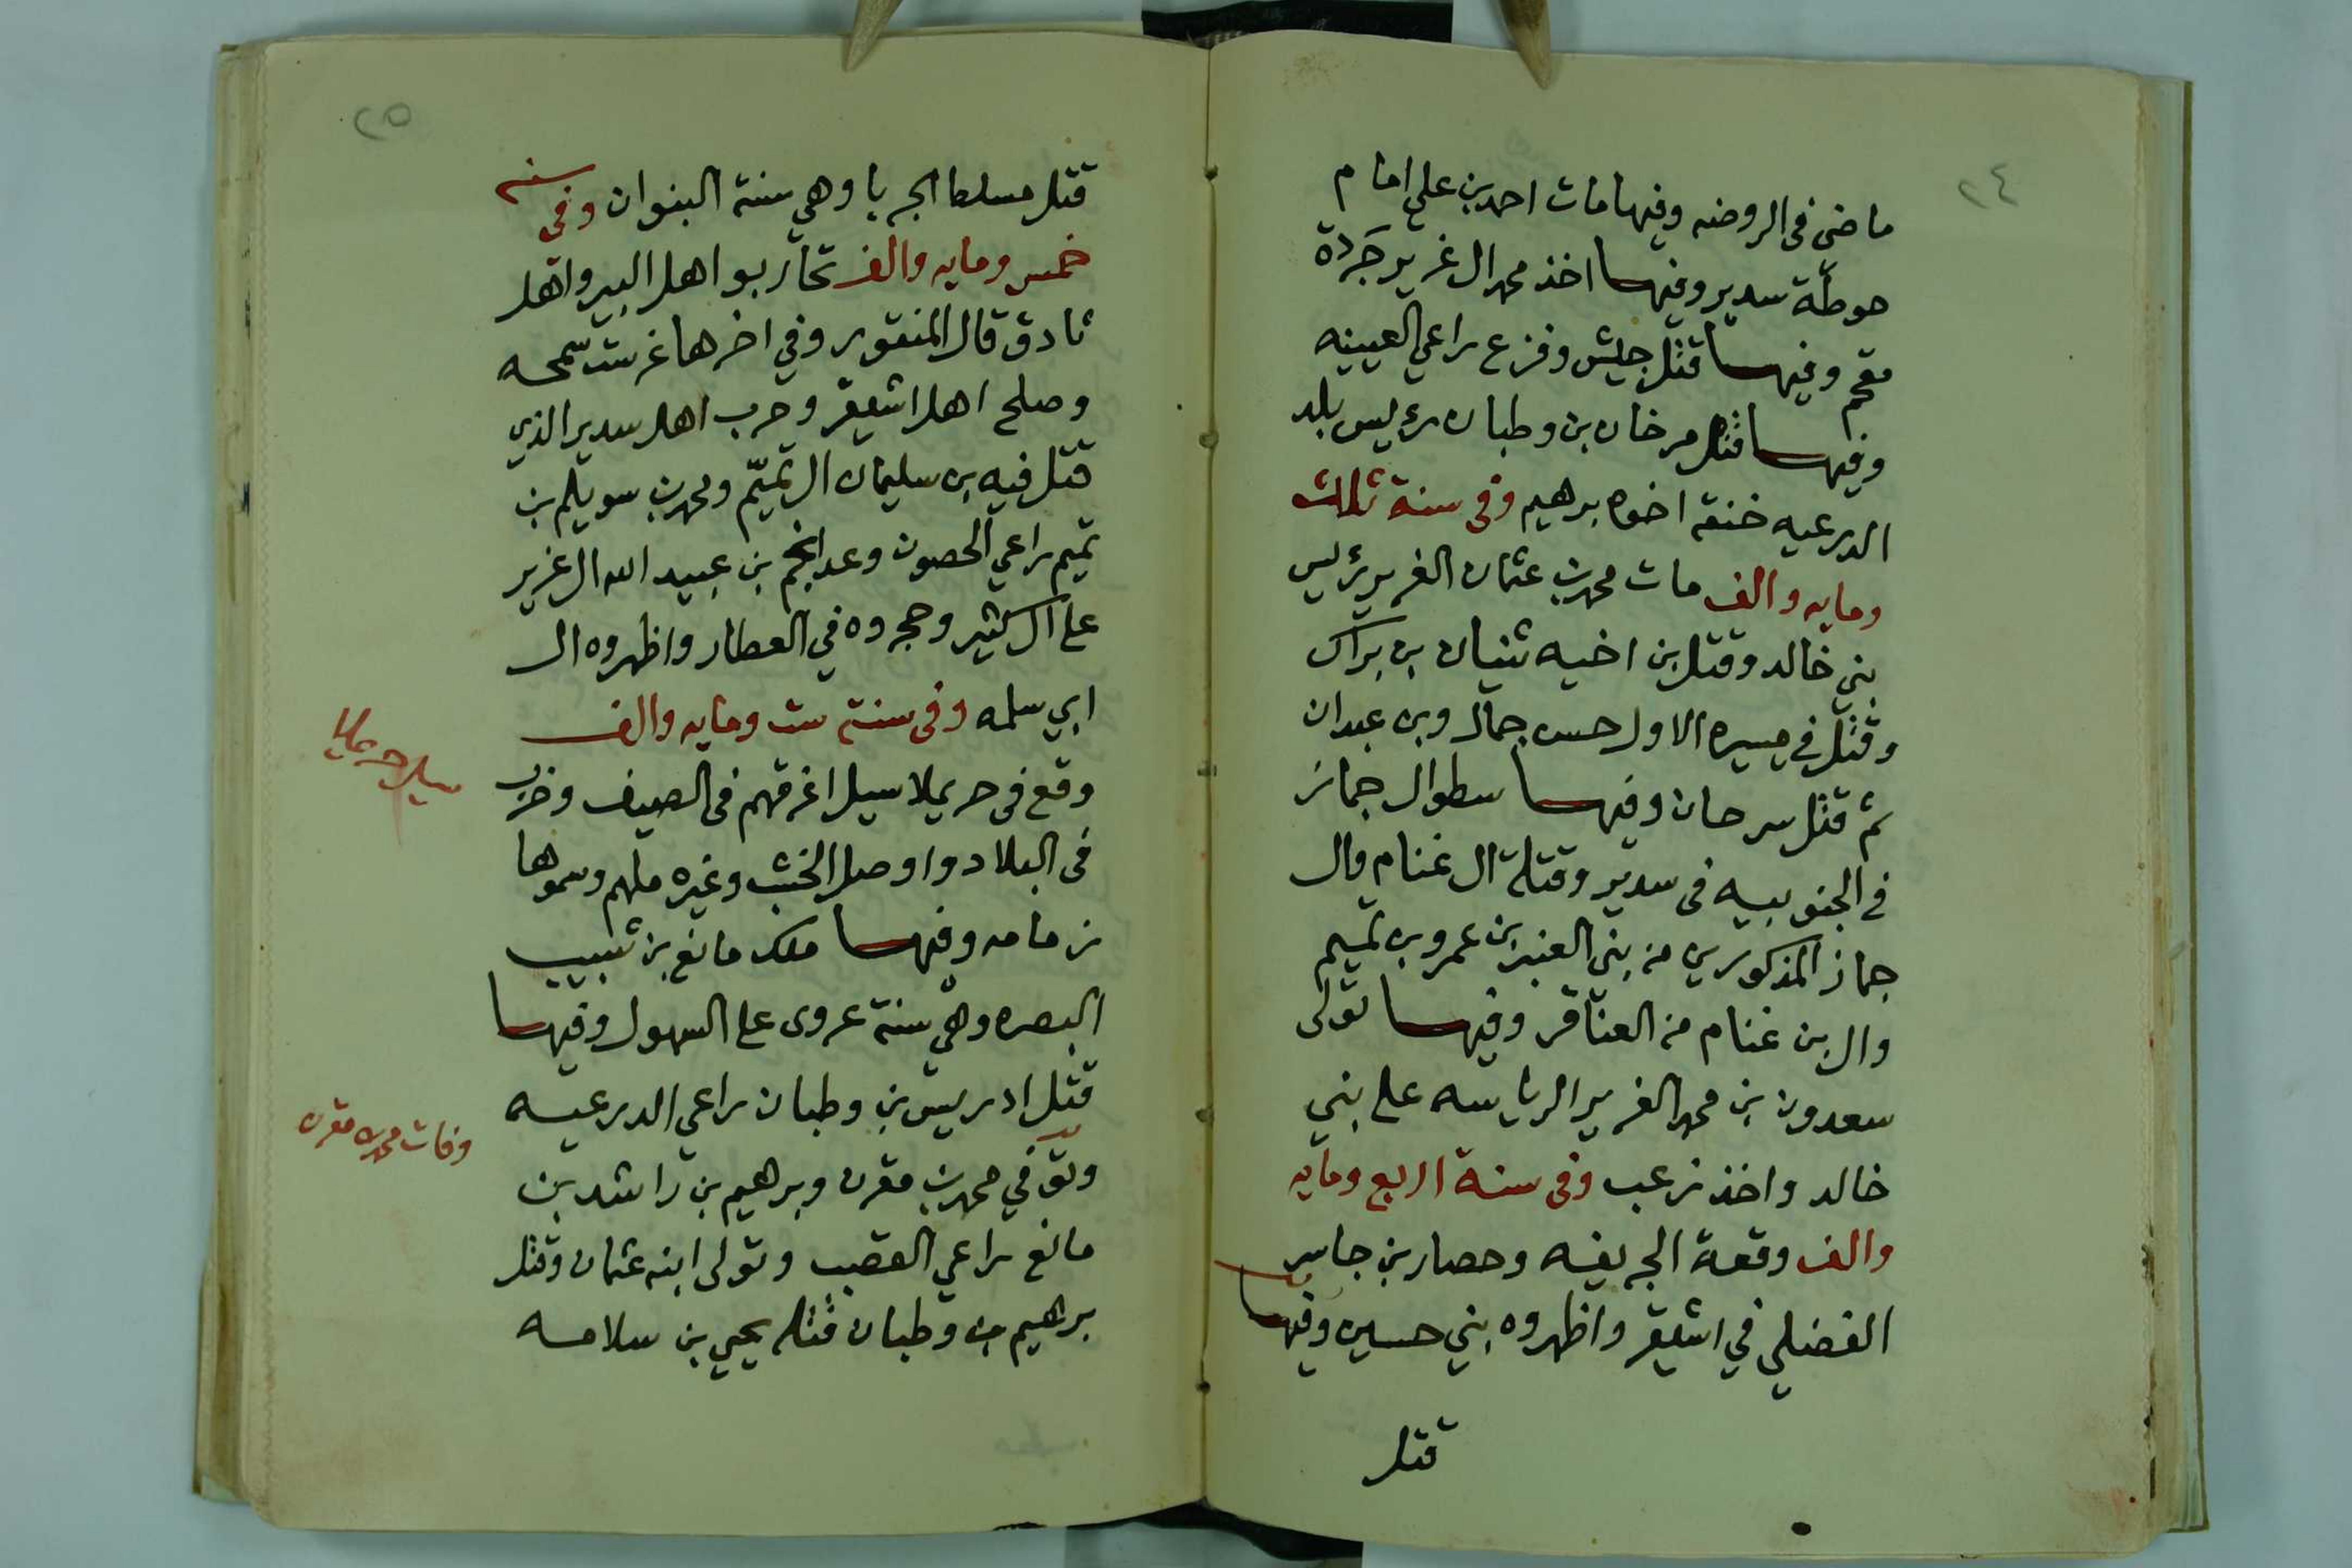 ٢٤
ماضي في الروضه وفيها مات احمد بن علي امام
حوطة سدير وفيها اخذ محمد ال غرير جردة
مقحم وفيها قتل جليش وفزع راعي العيينه
وفيها قتل مرخان بن وطبان رئيس بلد
الدرعيه خنقه اخوه برهيم وفي سنة ثلاث
ومايه والف مات محمد بن عثمان الغرير رئيس
بني خالد وقتل بن اخيه ثنيان بن براك
وقتل في مسيره الاول حسن جمال وبن عبدان
ثم قتل سرحان وفيها سطو ال جماز
في الجنوبيه في سدير وقتلة ال غنام وال
جماز المذكورين من بني العنبر بن عمرو بن تميم
وال بن غنام من العناقر وفيها تولى
سعدون بن محمد الغرير الرياسه على بني
خالد واخذ زعب وفي سنة اربع ومايه
والف وقعة الجريفه وحصار بن جاسر
الفضلي في اشيقر واظهروه بني حسين وفيها
قتل
٢٥
قتل مسلط الجربا وهي سنة البنوان وفي سنه
خمس ومايه والف تحاربوا اهل البير واهل
ثادق قال المنقور وفي اخرها غرست سمحه
وصلح اهل اشيقر وحرب اهل سدير الذي
قتل فيه بن سليمان ال تميّم ومحمد بن سويلم بن
تميم راعي الحصون وعدا نجم بن عبيد الله ال غرير
على ال كثير وحجروه في العطار واظهروه ال
ابي سلمه وفي سنة ست ومايه والف
وقع في حريملا سيل اغرقهم في الصيف وخرب
في البلاد واوصل الخشب وغيره ملهم وسموها
زمامه وفيها ملك مانع بن شبيب
البصره وهي سنة عروى على السهول وفيها
قتل ادريس بن وطبان راعي الدرعيه
وتوفي محمد بن مقرن وبرهيم بن راشد بن
مانع راعي القصب وتولى ابنه عثمان وقتل
برهيم بن وطبان قتله يحيى بن سلامه
سيل حريملا
وفات محمد بن مقرن